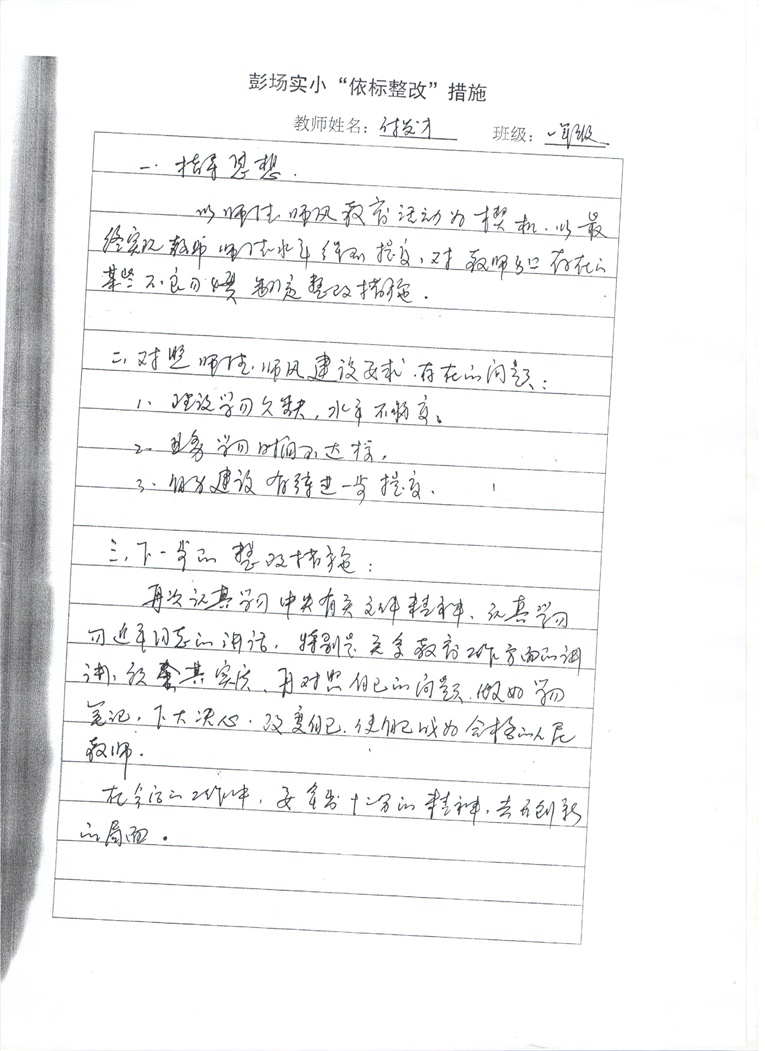 彭场实小“依标整改”措施
教师姓名：付发才 班级：一年级
一、指导思想.
以师德师风教育活动为契机，以最
终实现教师师德水平得到提高，对教师自己存在的
某些不良习惯制定整改措施。
二、对照师德师风建设要求，存在的问题：
1、理论学习欠缺，水平不够高。
2、业务学习时间不达标。
3、自身建设有待进一步提高。
三、下一步的整改措施：
再次认真学习中央有关文件精神，认真学习
习近平同志的讲话，特别是关于教育工作方面的
讲，实，再对照自己的问题，做好学习
笔记，下大决心，改变自己，使自己成为合格的人民
教师.
在今后的工作中，要拿出十二分的精神，去开创新
的局面。